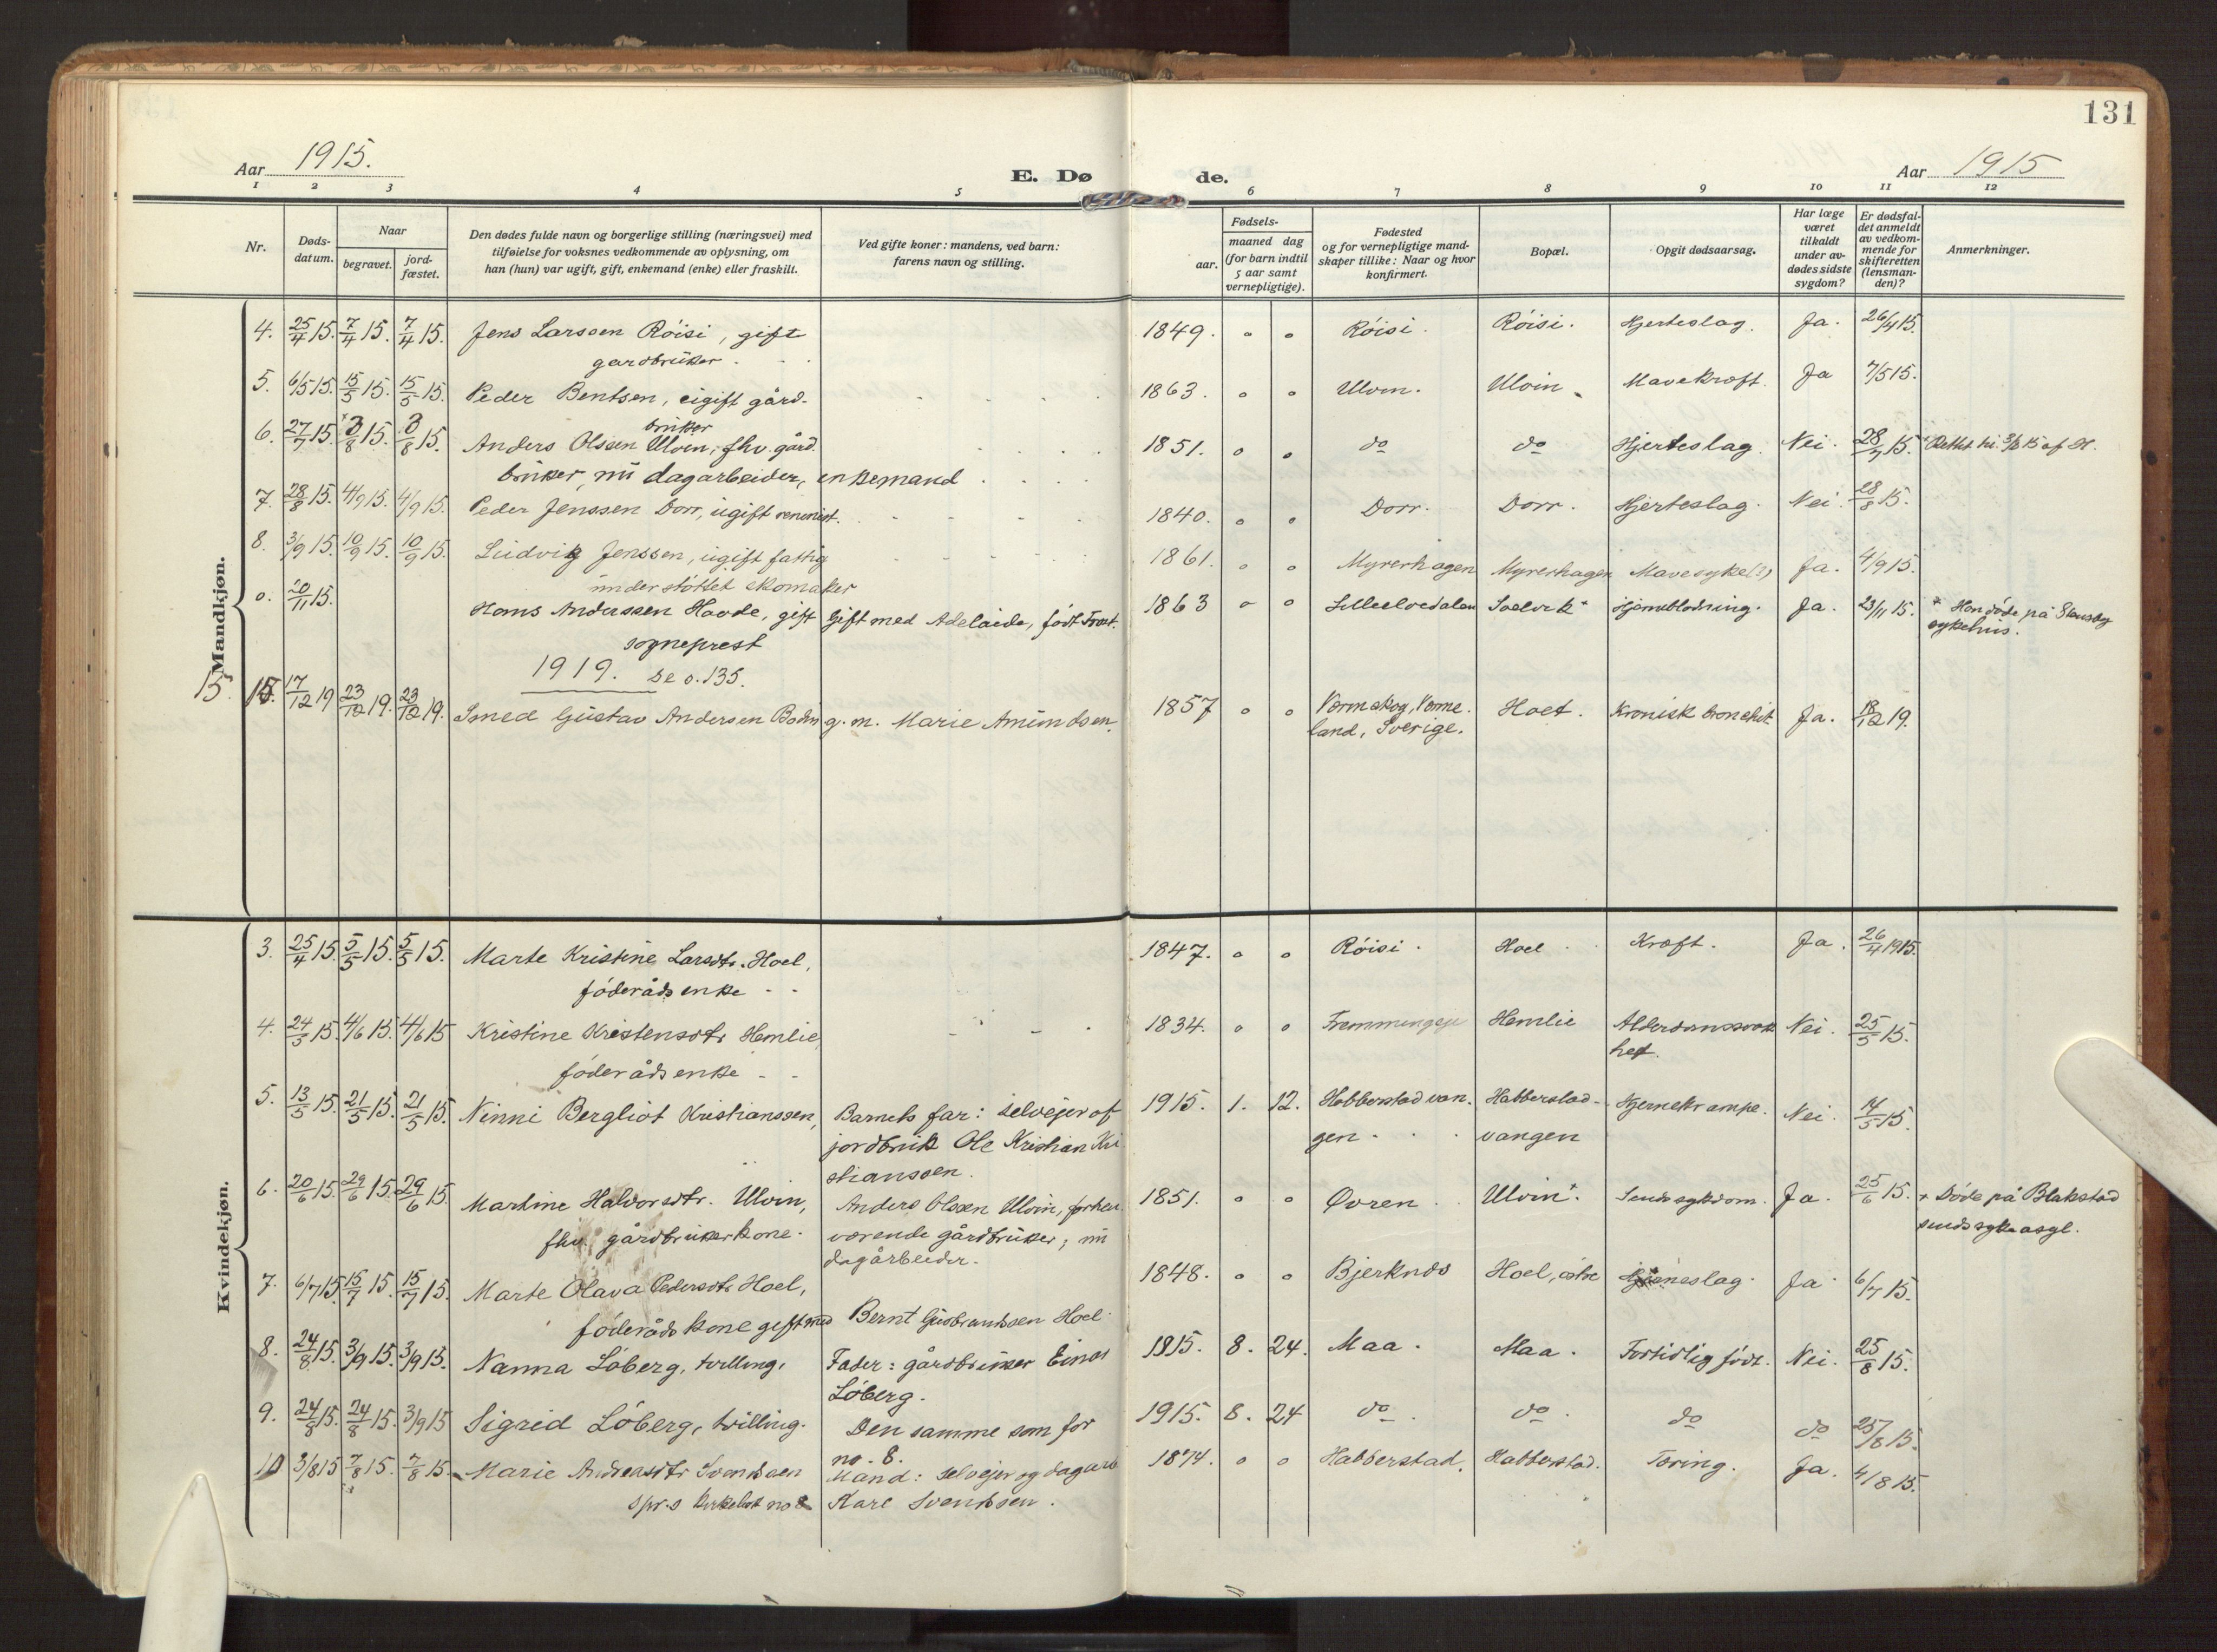 131
Aar 1915.
E. Dø
de.
Aar 1915
1 2 3 4 5 6 7 8 9 10 11 12
Nr.
Døds-
datum.
Naar
begravet.
jord-
fæstet.
Den dødes fulde navn og borgerlige stilling (næringsvei) med
tilføielse for voksnes vedkommende av oplysning, om
han (hun) var ugift, gift, enkemand (enke) eller fraskilt.
Ved gifte koner: mandens, ved barn:
farens navn og stilling.
Fødsels-
aar.
maaned dag
(for barn indtil
5 aar samt
vernepligtige).
Fødested
og for vernepligtige mand-
skaper tillike: Naar og hvor
konfirmert.
Bopæl.
Opgit dødsaarsag.
Har læge
været
tilkaldt
under av-
dødes sidste
sygdom?
Er dødsfal-
det anmeldt
av vedkom-
mende for
skifteretten
(lensman-
den)?
Anmerkninger.
Mandkjøn.
4. 25/4 15. 7/4 15. 7/4 15. Jens Larssen Röisi, gift 1849. o o Röisi. Röisi. Hjerteslag. Ja. 26/4 15.
gardbruker
5. 6/5 15. 15/5 15. 15/5 15. Peder Bentsen, eigift gård- 1863. o o Ulvin. Ulvin Mavekræft. Ja 7/5 15.
bruker
6. 27/7 15. 3/8 15. 3/8 15. Anders Olssen Ulvin, fhv. gård 1851. o o do do Hjerteslag. Nei. 28/7 15. Rettet 3/8 15 af
bruker, nu dagarbeider, enkemand
7. 28/8 15. 4/9 15. 4/9 15. Peder Jenssen Dorr, ugift 1840. o o Dorr. Dorr. Hjerteslag. Nei. 28/8 15.
8. 3/9 15. 10/9 15. 10/9 15. Ludvig Jenssen, ugift fattig 1861. o o Myrerhagen Myrerhagen Mavesyke(?) Ja. 4/9 15.
understøttet skomaker
o. 20/11 15. Hans Anderssen Hovde, gift Gift med Adelaide, født 1863 o o Lilleelvedalen Hjerneblødning. Ja. 23/11 15. * Han døde på Stensby
sykehus.
sogneprest
1919. se s. 135.
15. 15. 17/12 19 23/12 19. 23/12 19. Smed Gustav Andersen Bodin g. m. Marie Amundsen. 1857 o o Värmskog, Verme- Hoel. Kronisk bronchit. Ja. 18/12 19.
land, Sverige.
Kvindekjøn.
3. 25/4 15. 5/5 15. 5/5 15. Marte Kristine Larsdtr. Hoel, 1847. o o Röisi. Hoel Kræft. Ja. 26/4 1915.
föderåds enke
4. 24/5 15. 4/6 15. 4/6 15 Kristine Kristensdtr Hemlie, 1834. o o Hemlie Alderdomssvak Nei. 25/5 15.
het.
föderåds enke
5. 13/5 15. 21/5 15. 21/5 15. Ninni Bergliot Kristianssen, Barnets far: selveier af 1915. 1. 12. Habberstad van- Habberstad- Hjernekrampe. Nei. 14/5 15.
jordbruk Ole Kristian Kri gen vangen
stianssen.
6. 20/6 15. 29/6 15. 29/6 15. Martine Halvorsdtr. Ulvin, Anders Olssen Ulvin, forhen 1851. o o Øvren Ulvin+. Sindssykdom. Ja. 25/6 15. + Døde på Blakstad
fhv. gårdbruker kone. værende gårdbruker, nu sindssyke asyl.
dagarbeider.
7. 6/7 15. 15/7 15. 15/7 15. Marte Olava Pedersdtr Hoel, 1848. o o Bjerknes Hoel, østre Hjerneslag. Ja 6/7 15.
föderåds kone gift med Bernt Gudbrandsen Hoel.
8. 24/8 15. 3/9 15. 3/9 15. Nanna Löberg, tvilling. Fader: gårdbruker Einar 1915. 8. 24. Maa. Maa. Fortidlig født. Nei. 25/8 15.
Löberg.
9. 24/8 15. 24/8 15. 3/9 15 Sigrid Löberg, tvilling. Den samme som for 1915. 8. 24 do. do. do do 25/8 15.
no. 8.
10 3/8 15 7/8 15. 7/8 15. Marie Andreasdtr Svendsen Mand: selveier og dagarb 1874. o o Habberstad. Habberstad. Tæring. Ja. 4/8 15.
no 8 Karl Svendsen.